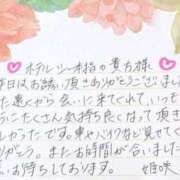 ホテルシー本指の貴方様
昨日はお誘い頂きありがとうございました
また遠くから会いに来てくれて、いっ
うにたくさん気持ち良くなって頂き
しかったです。車やバイク等ど見せてく
りがとう。またお時間が合いました
お待ちしております。
姫咲